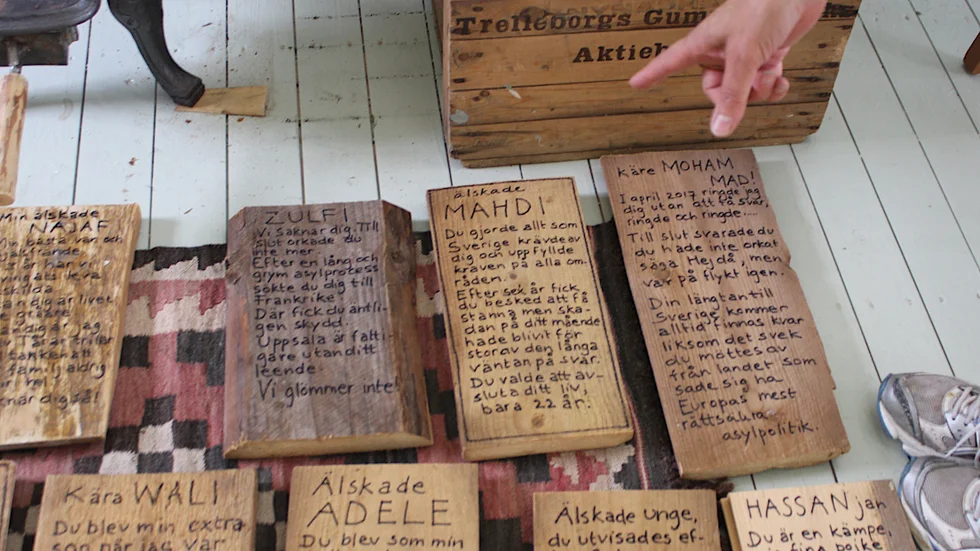 Trelleborgs Gum
Aktieb
Min älskade
NAJAF
Min bästa vän och
ZULFI
Vi saknar dig. Till
slut orkade du
inte mer.
Efter en lång och
grym asylprocess
sökte du dig till
Frankrike.
Där fick du äntli-
gen skydd.
Uppsala är fatti-
gare utan ditt
leende.
Vi glömmer inte!
älskade
MAHDI
Du gjorde allt som
Sverige krävde av
dig och uppfyllde
kraven på alla om-
råden.
Efter sex år fick
du besked att få
stanna men ska-
dan på ditt mående
hade blivit för
stor av den långa
väntan på svar.
Du valde att av-
sluta ditt liv,
bara 22 år.
Käre MOHAM
MAD!
I april 2017 ringde jag
dig utan att få svar,
ringde och ringde....
Till slut svarade du
du hade inte orkat
säga Hejdå, men
var på flykt igen.
Din längtan till
Sverige kommer
alltid finnas kvar
liksom det svek
du möttes av
från landet som
sade sig ha
Europas mest
rättsäkra
asylpolitik.
Kära WALI
Du blev min extra
son när jag var
Älskade
ADELE
Du blev som min
Älskade unge,
du utvisades ef-
HASSAN jan
Du är en kämpe,